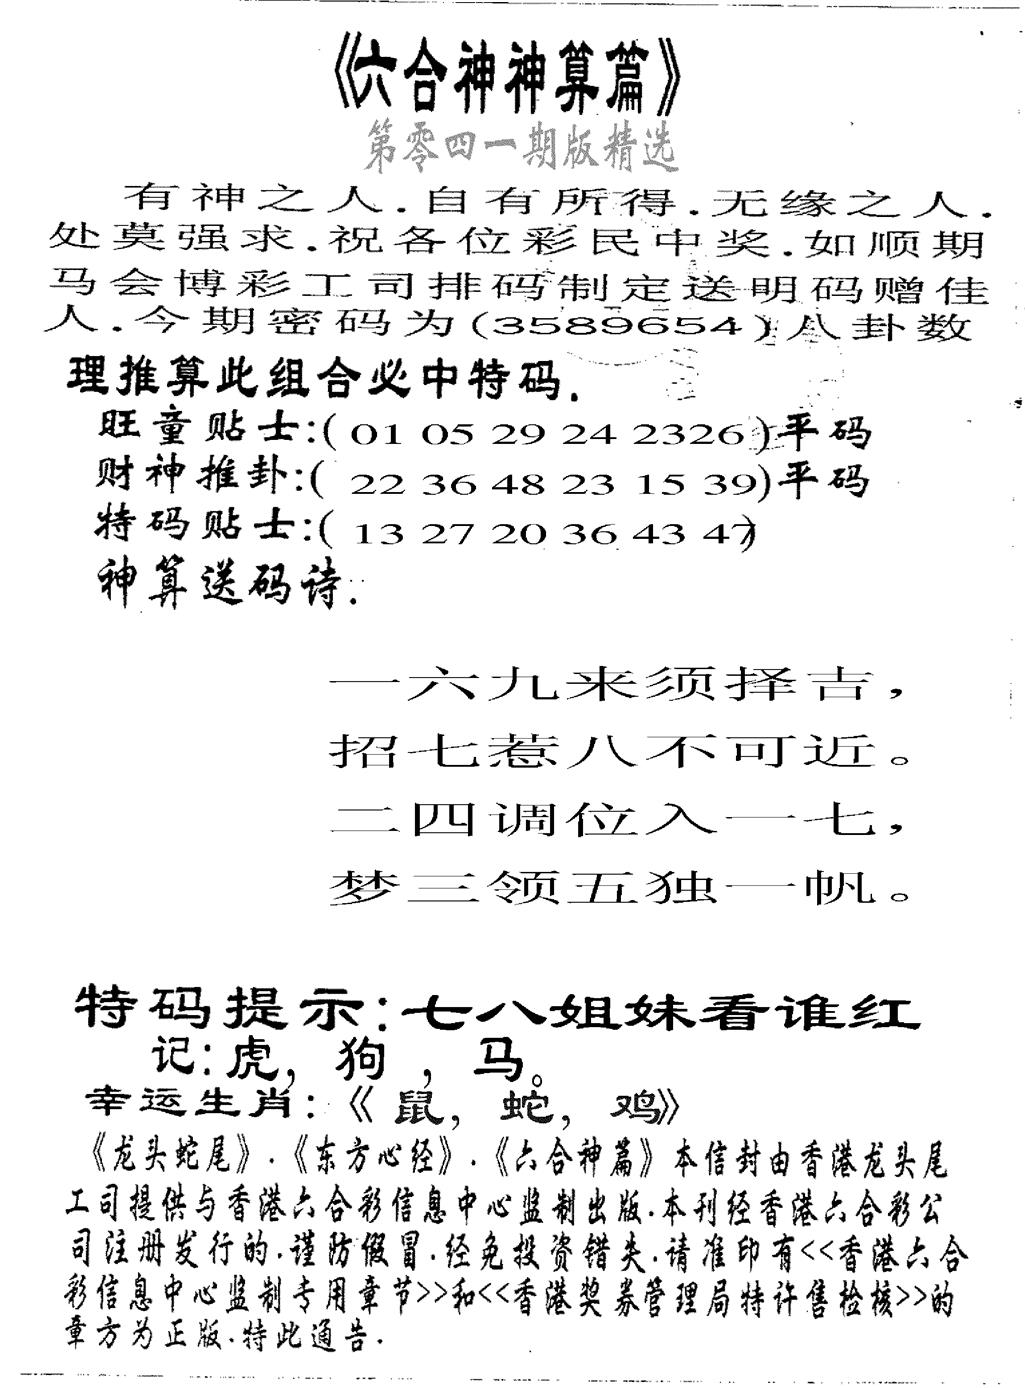 《六合神神算篇》
第零四一期版精选
有神之人.自有所得.无缘之人.
处莫强求.祝各位彩民中奖.如顺期
马会博彩工司排码制定送明码赠佳
人.今期密码为(3589654)八卦数
理推算此组合必中特码.
旺童贴士:(01 05 29 24 2326)平码
财神推卦:(22 36 48 23 15 39)平码
特码贴士:(13 27 20 36 43 47)
神算送码诗.
一六九来须择吉,
招七惹八不可近。
二四调位入一七,
梦三领五独一帆。
特码提示:七八姐妹看谁红
记:虎,狗,马。
幸运生肖:《鼠,蛇,鸡》
《龙头蛇尾》.《东方心经》.《六合神篇》本信封由香港龙头尾
工司提供与香港六合彩信息中心监制出版.本刊经香港六合彩公
司注册发行的.谨防假冒.经免投资错失.请准印有<<香港六合
彩信息中心监制专用章节>>和<<香港奖券管理局特许售检核>>的
章方为正版.特此通告.